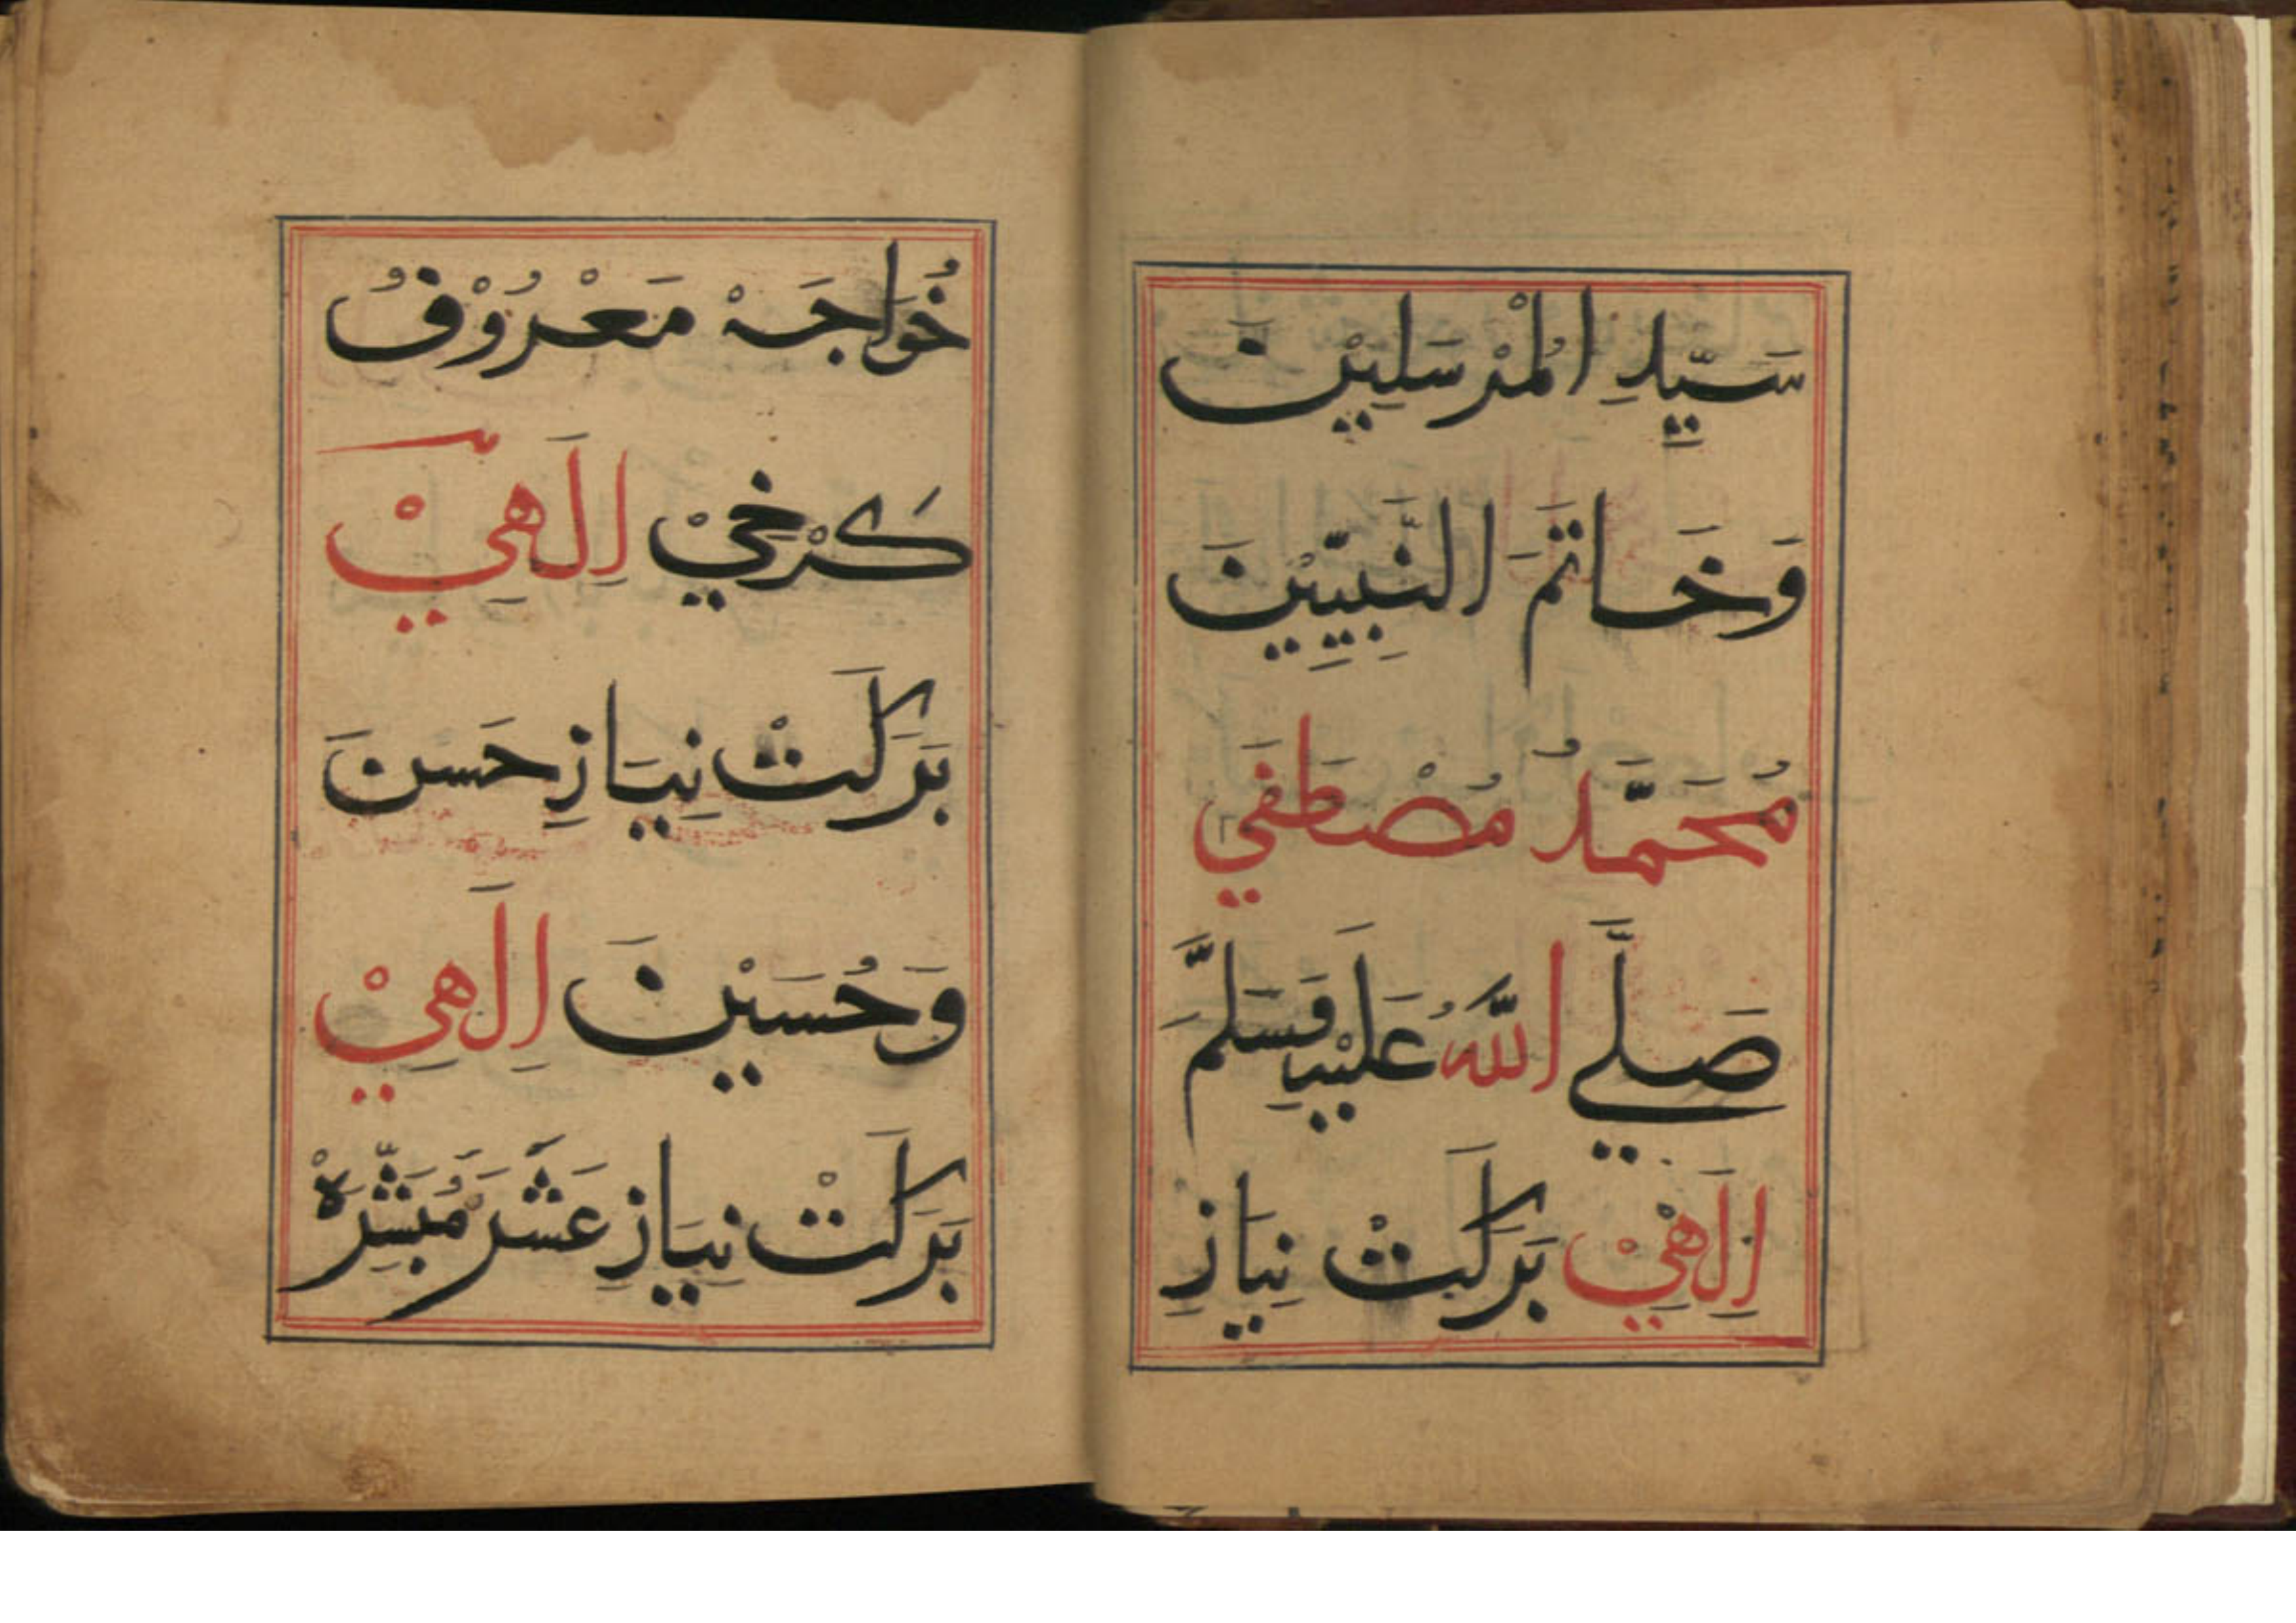 سَيِّدِ الْمُرْسَلِيْنَ
وَخَاتَمَ النَّبِيِّيْنَ
مُحَمَّدُ مُصْطَفَي
صَلَّے اللّٰهُ عَلَيْهِ وَسَلَّمَ
اِلٰهِيْ بَرَكَتْ نِيَازِ
خُوَاجَهْ مَعْرُوْفُ
كَرْخِيْ اِلٰهِيْ
بَرَكَتْ نِيَازِ حَسَنَ
وَحُسَيْنَ اِلٰهِيْ
بَرَكَتْ نِيَازِ عَشَرَ مُبَشَّرَهْ